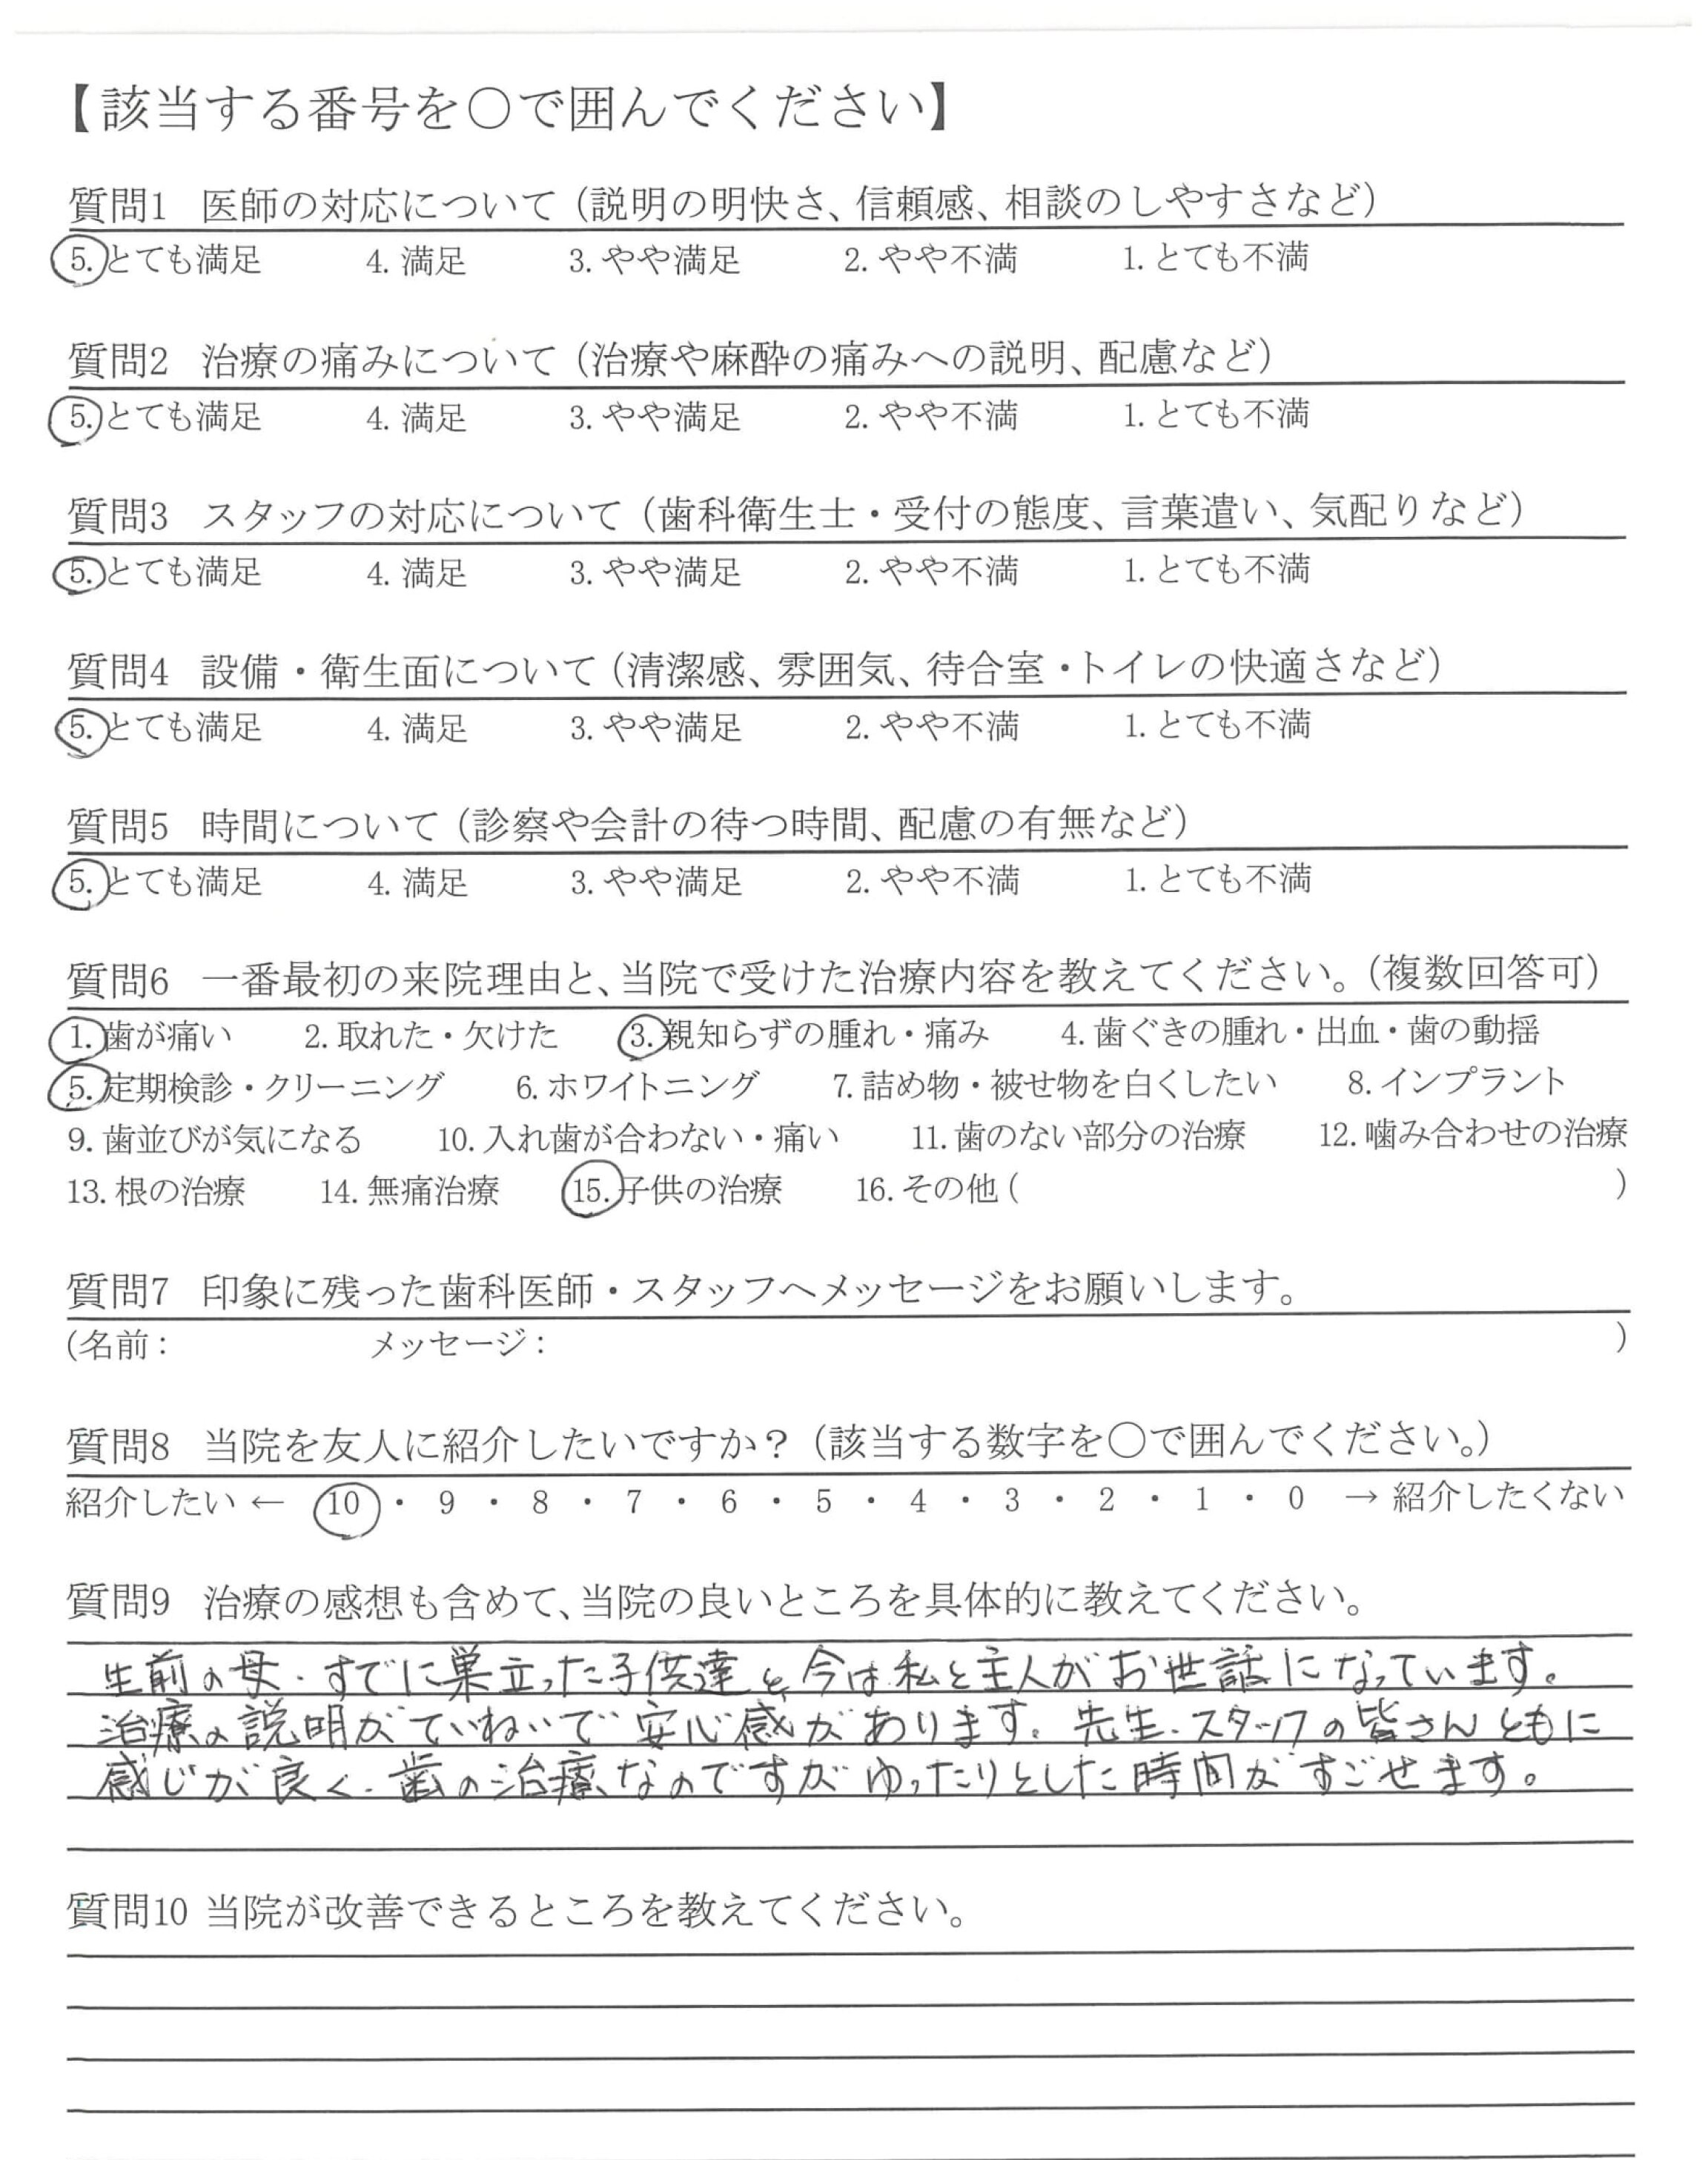 【該当する番号を〇で囲んでください】
質問1 医師の対応について（説明の明快さ、信頼感、相談のしやすさなど）
5. とても満足 4. 満足 3. やや満足 2. やや不満 1. とても不満
質問2 治療の痛みについて（治療や麻酔の痛みへの説明、配慮など）
5. とても満足 4. 満足 3. やや満足 2. やや不満 1. とても不満
質問3 スタッフの対応について（歯科衛生士・受付の態度、言葉遣い、気配りなど）
5. とても満足 4. 満足 3. やや満足 2. やや不満 1. とても不満
質問4 設備・衛生面について（清潔感、雰囲気、待合室・トイレの快適さなど）
5. とても満足 4. 満足 3. やや満足 2. やや不満 1. とても不満
質問5 時間について（診察や会計の待つ時間、配慮の有無など）
5. とても満足 4. 満足 3. やや満足 2. やや不満 1. とても不満
質問6 一番最初の来院理由と、当院で受けた治療内容を教えてください。（複数回答可）
1. 歯が痛い 2. 取れた・欠けた 3. 親知らずの腫れ・痛み 4. 歯ぐきの腫れ・出血・歯の動揺
5. 定期検診・クリーニング 6. ホワイトニング 7. 詰め物・被せ物を白くしたい 8. インプラント
9. 歯並びが気になる 10. 入れ歯が合わない・痛い 11. 歯のない部分の治療 12. 噛み合わせの治療
13. 根の治療 14. 無痛治療 15. 子供の治療 16. その他（ ）
質問7 印象に残った歯科医師・スタッフへメッセージをお願いします。
（名前： メッセージ： ）
質問8 当院を友人に紹介したいですか？（該当する数字を〇で囲んでください。）
紹介したい ← 10 ・ 9 ・ 8 ・ 7 ・ 6 ・ 5 ・ 4 ・ 3 ・ 2 ・ 1 ・ 0 → 紹介したくない
質問9 治療の感想も含めて、当院の良いところを具体的に教えてください。
生前の母、すでに巣立った子供達と、今は私と主人がお世話になっています。
治療の説明がていねいで安心感があります。先生、スタッフの皆さんともに
感じが良く、歯の治療なのですがゆったりとした時間がすごせます。
質問10 当院が改善できるところを教えてください。